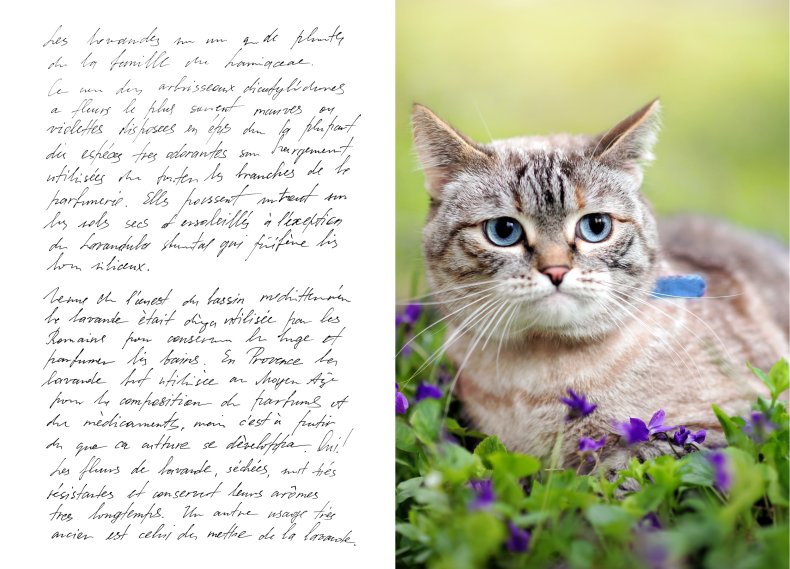 Les lavandes un de plantes
de la famille des Lamiaceae.
Ce arbrisseaux dicotylédones
a fleurs le plus souvent mauves ou
violettes disposées en épis la plupart
des espèces tres odorantes largement
utilisées toutes les branches de la
parfumerie. Elles poussent surtout sur
les sols secs et ensoleillés à l'exception
du Lavandula qui préfère les
siliceux.
Venue de l'ouest du bassin méditerranéen
la lavande était utilisée par les
Romains pour conserver le linge et
parfumer les bains. En Provence la
lavande fut utilisée au Moyen Âge
pour la composition de parfums et
des médicaments, mais c'est à partir
du que culture se développa.
Les fleurs de lavande, séchées, sont très
résistantes et conservent leurs arômes
tres longtemps. Un autre usage très
ancien est celui de la lavande.